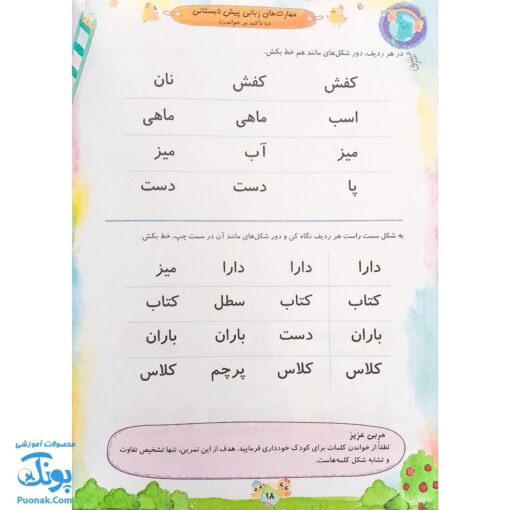 مهارت‌های زبانی پیش دبستانی
(با تأکید بر خواندن)
در هر ردیف، دور شکل‌های مانند هم خط بکش.
کفش کفش نان
اسب ماهی ماهی
میز آب میز
پا دست دست
به شکل سمت راست هر ردیف نگاه کن و دور شکل‌های مانند آن در سمت چپ، خط بکش.
دارا دارا دارا میز
کتاب کتاب سطل کتاب
باران دست باران باران
کلاس کلاس پرچم کلاس
مربی عزیز
لطفاً از خواندن کلمات برای کودک خودداری فرمایید. هدف از این تمرین، تنها تشخیص تفاوت
و تشابه شکل کلمه‌هاست.
۱۸
محصولات آموزشی
پونک
Puonak.Com